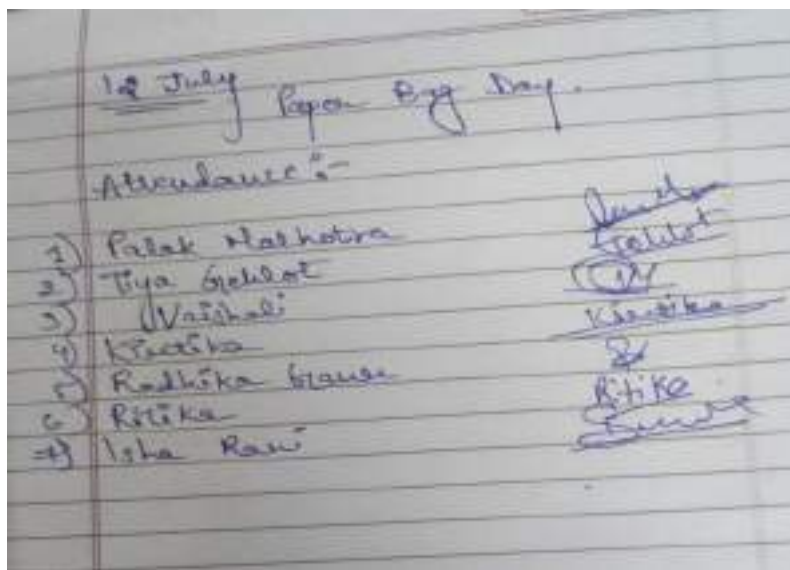 12 July
Paper Bag Day.
Attendance :-
1) Palak Malhotra
2) Tiya Gehlot Gehlot
3) Vaishali
4) Kirtika Kirtika
5) Radhika
6) Ritika Ritika
7) Isha Rani